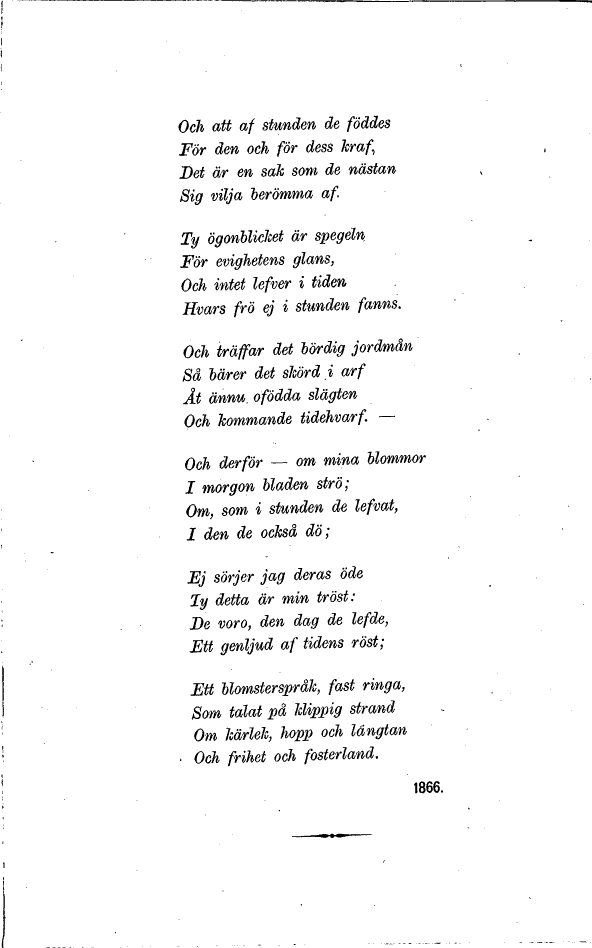 Och att af stunden de föddes
För den och för dess kraf,
Det är en sak som de nästan
Sig vilja berömma af.
Ty ögonblicket är spegeln
För evighetens glans,
Och intet lefver i tiden
Hvars frö ej i stunden fanns.
Och träffar det bördig jordmån
Så bärer det skörd i arf
Åt ännu ofödda slägten
Och kommande tidehvarf. —
Och derför — om mina blommor
I morgon bladen strö;
Om, som i stunden de lefvat,
I den de också dö;
Ej sörjer jag deras öde
Ty detta är min tröst:
De voro, den dag de lefde,
Ett genljud af tidens röst;
Ett blomsterspråk, fast ringa,
Som talat på klippig strand
Om kärlek, hopp och långtan
Och frihet och fosterland.
1866.